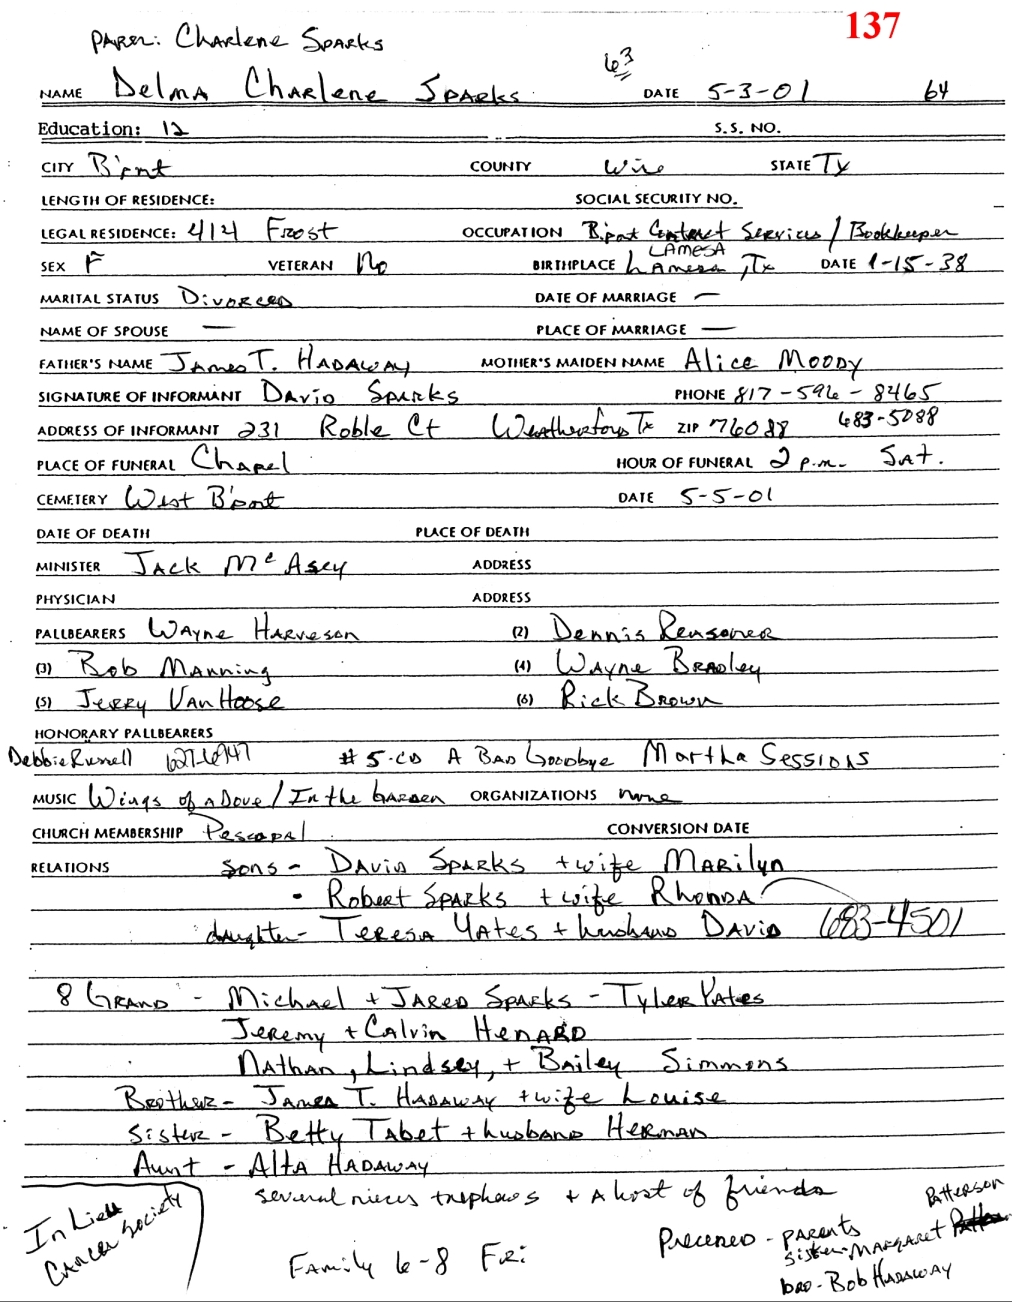 137
PAPER: Charlene Sparks
63
NAME Delma Charlene Sparks DATE 5-3-01 64
Education: 12 S.S. NO.
CITY B'port COUNTY Wise STATE Tx
LENGTH OF RESIDENCE: SOCIAL SECURITY NO.
LEGAL RESIDENCE: 414 Frost OCCUPATION B'port Contract Services / Bookkeeper
LAMESA
SEX F VETERAN No BIRTHPLACE Lamesa, Tx DATE 1-15-38
MARITAL STATUS Divorced DATE OF MARRIAGE —
NAME OF SPOUSE — PLACE OF MARRIAGE —
FATHER'S NAME James T. Hadaway MOTHER'S MAIDEN NAME Alice Moody
SIGNATURE OF INFORMANT David Sparks PHONE 817-596-8465
ADDRESS OF INFORMANT 231 Roble Ct Weatherford Tx ZIP 76088 683-5088
PLACE OF FUNERAL Chapel HOUR OF FUNERAL 2 p.m. Sat.
CEMETERY West B'port DATE 5-5-01
DATE OF DEATH PLACE OF DEATH
MINISTER Jack McAsey ADDRESS
PHYSICIAN ADDRESS
PALLBEARERS Wayne Harveson (2) Dennis Reasoner
(3) Bob Manning (4) Wayne Bradley
(5) Jerry Van Hoose (6) Rick Brown
HONORARY PALLBEARERS
Debbie Russell 627-6947 #5-CD A Bad Goodbye Martha Sessions
MUSIC Wings of a Dove / In the Garden ORGANIZATIONS none
CHURCH MEMBERSHIP CONVERSION DATE
RELATIONS sons - David Sparks + wife Marilyn
- Robert Sparks + wife Rhonda
daughter - Teresa Yates + husband David 683-4501
8 Grand - Michael + Jared Sparks - Tyler Yates
Jeremy + Calvin Henard
Nathan, Lindsey, + Bailey Simmons
Brother - James T. Hadaway + wife Louise
Sister - Betty Tabet + husband Herman
Aunt - Alta Hadaway
several nieces + nephews + a host of friends
In Lieu
Cancer Society
Family 6-8 Fri
Preceded - parents
Patterson
sister - Margaret
bro - Bob Hadaway